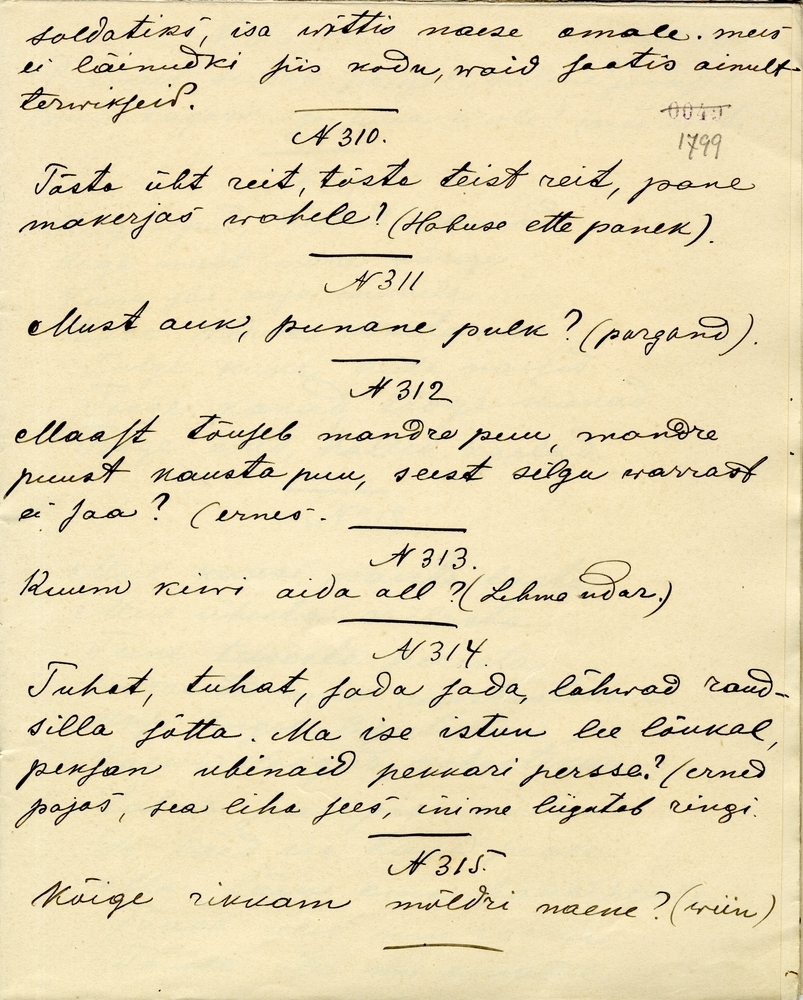 soldatiks, isa wõttis naese omale. mees
ei läinudki siis kodu, waid saatis ainult
terwiseid.
0049
1799
N 310.
Tõsta üht reit, tõsta teist reit, pane
makerjas wahele? (Hobuse ette panek).
N 311
Must auk, punane pulk? (porgand).
N 312
Maast tõuseb mandre puu, mandre
puust kausta puu, seest silgu warrast
ei saa? (ernes.
N 313.
Kuum kiwi aida all? (Lehma udar.)
N 314.
Tuhat, tuhat, sada sada, lähwad raud-
silla sõtta. Ma ise istun lee lõukal,
peksan ubinaid pekkari persse? (erned
pajas, sea liha sees, inime liigutab ringi.
N 315.
Kõige rikkam möldri naene? (wiin)